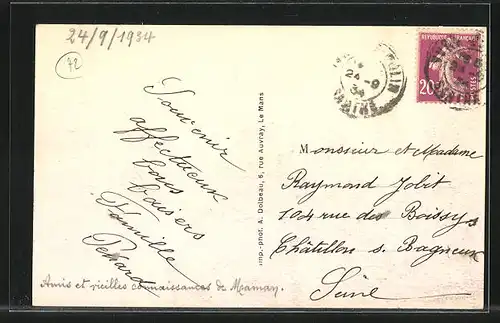 24/9/1934
72
24-9
34
SARTHE
REPUBLIQUE FRANÇAISE
20
POSTES
Souvenir
affectueux
bons
baisers
Famille
Amis et vieilles connaissances de Maman.
Imp.-phot. A. Dolbeau, 6, rue Auvray, Le Mans
Monsieur et Madame
Raymond Jolit
104 rue des Boissys
Châtillon s. Bagneux
Seine